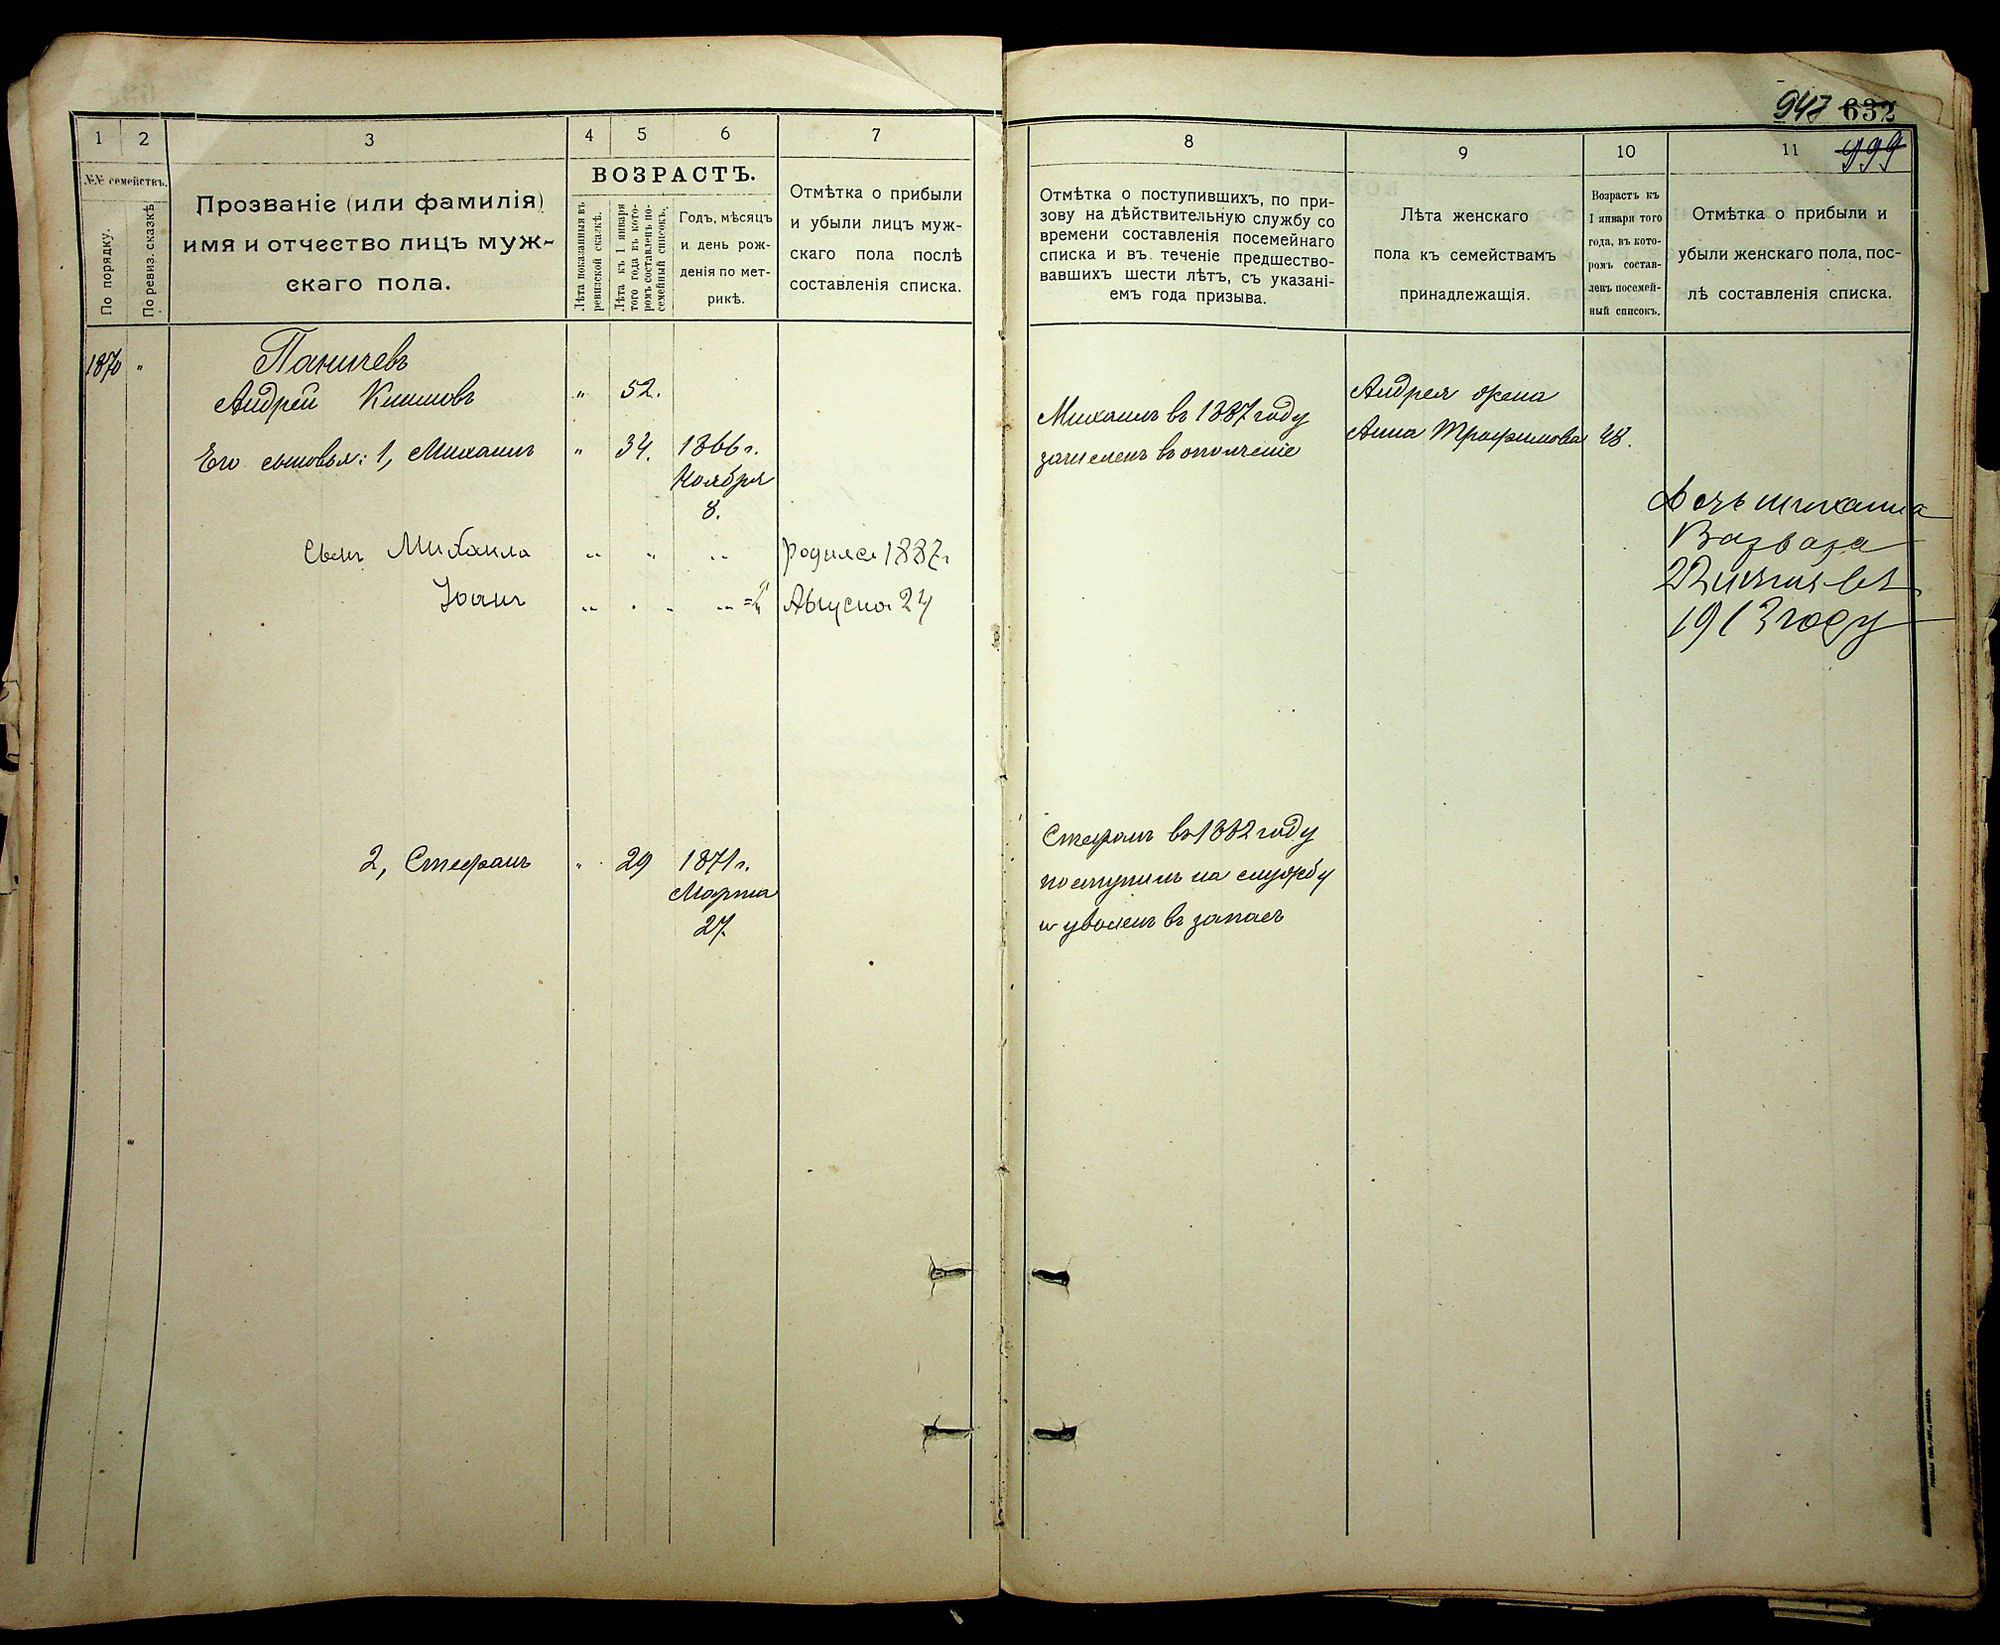 943 632
999
1 2 3 4 5 6 7
№№ семействъ.
По порядку.
По ревиз. сказкѣ
Прозваніе (или фамилія)
имя и отчество лицъ муж-
скаго пола.
ВОЗРАСТЪ.
Лѣта показанныя въ
ревизской сказкѣ.
Лѣта къ 1 января
того года въ кото-
ромъ составленъ по-
семейный списокъ.
Годъ, мѣсяцъ
и день рож-
денія по мет-
рикѣ.
Отмѣтка о прибыли
и убыли лицъ муж-
скаго пола послѣ
составленія списка.
1870 "
Паничевъ
Андрей Климовъ " 52.
Его сыновья: 1, Михаилъ " 34. 1866 г.
Ноября
8.
Сынъ Михаила " " " родился 1887 г
Іоанъ Августа 24
2, Стефанъ " 29 1871 г.
Марта
27.
8 9 10 11
Отмѣтка о поступившихъ, по при-
зову на дѣйствительную службу со
времени составленія посемейнаго
списка и въ теченіе предшество-
вавшихъ шести лѣтъ, съ указані-
емъ года призыва.
Лѣта женскаго
пола къ семействамъ
принадлежащія.
Возрастъ къ
1 января того
года, въ кото-
ромъ состав-
ленъ посемей-
ный списокъ.
Отмѣтка о прибыли и
убыли женскаго пола, пос-
лѣ составленія списка.
Михаилъ въ 1887 году
зачисленъ въ ополченіе
Андрея жена
Анна Трофимова 48.
Дочь Михаила
22 июня въ
1913 году
Стефанъ въ 1882 году
поступилъ на службу
и уволенъ въ запасъ